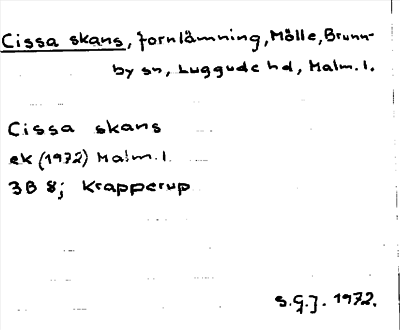 Cissa skans, fornlämning, Mölle, Brunn-
by sn, Luggude hd, Malm. l.
Cissa skans
ek (1972) Malm. l.
3B 8; Krapperup
S.G.J. 1972.